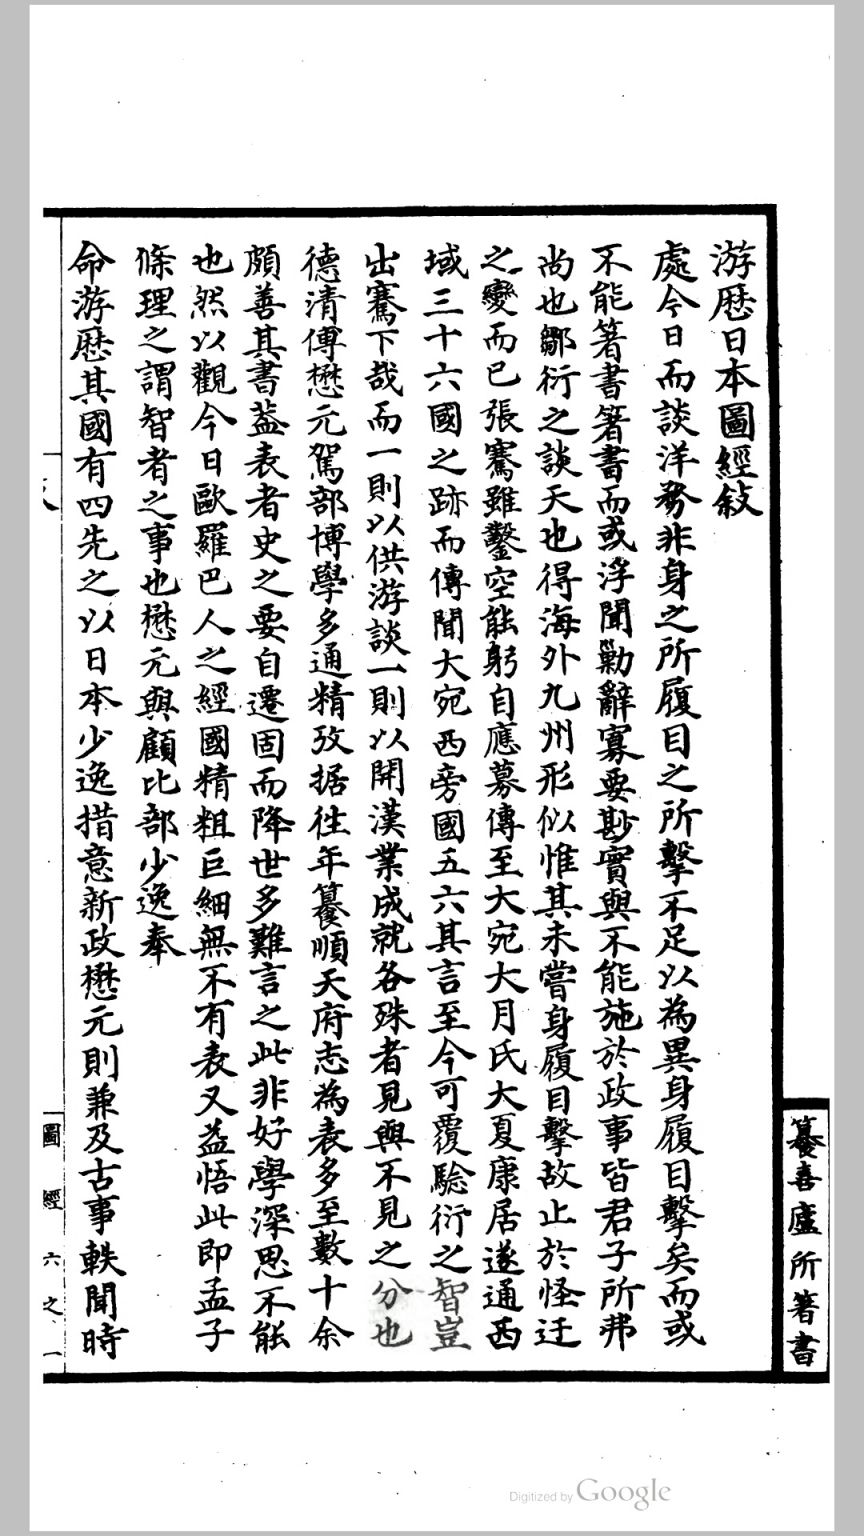 游歷日本圖經敍
處今日而談洋務非身之所履目之所擊不足以為異身履目擊矣而或
不能箸書箸書而或浮聞勦辭寡要尠實與不能施於政事皆君子所弗
尚也鄒衍之談天也得海外九州形似惟其未嘗身履目擊故止於怪迂
之變而已張騫雖鑿空能躬自應募傳至大宛大月氏大夏康居遂通西
域三十六國之跡而傳聞大宛西旁國五六其言至今可覆驗衍之智豈
出騫下哉而一則以供游談一則以開漢業成就各殊者見與不見之分也
德清傅懋元駕部博學多通精攷据往年纂順天府志為表多至數十余
頗善其書葢表者史之要自遷固而降世多難言之此非好學深思不能
也然以觀今日歐羅巴人之經國精粗巨細無不有表又益悟此即孟子
條理之謂智者之事也懋元與顧比部少逸奉
命游歷其國有四先之以日本少逸措意新政懋元則兼及古事軼聞時
纂喜廬所箸書
圖經六之一